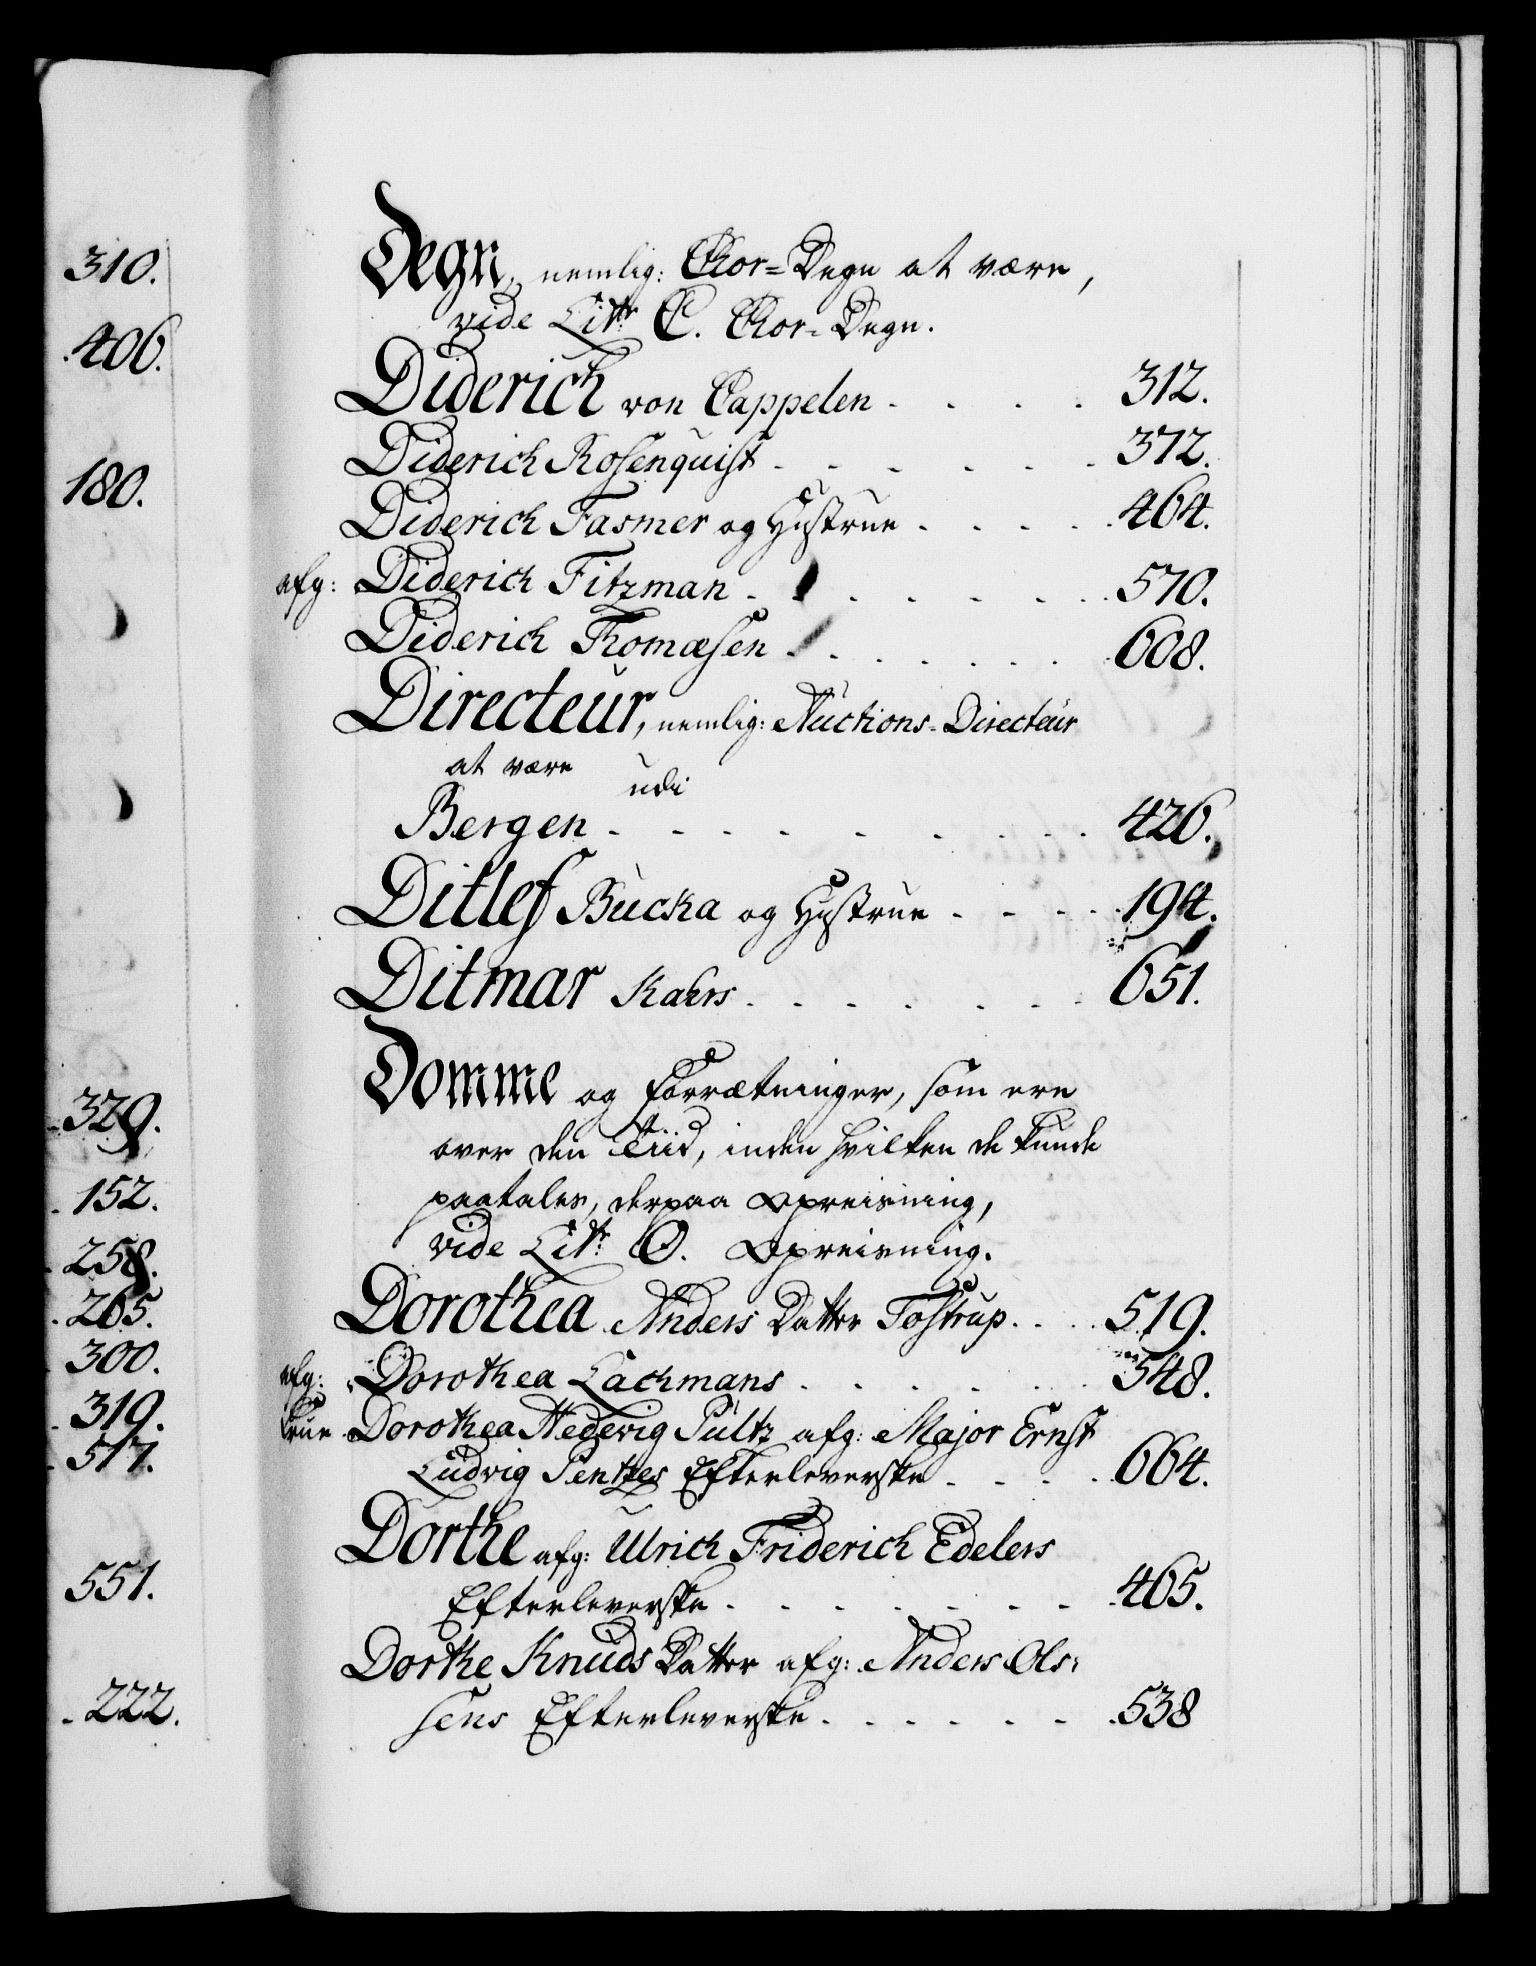 310.
406.
180.
329.
152.
258.
265.
300.
319.
517.
551.
222.
Degn, nemlig: Chor=Degn at være,
vide Litr: C. Chor=Degn.
Diderich von Cappelen . . . . 312.
Diderich Rosenquist . . . . . . 372.
Diderich Fasmer og Hustrue . . . . 464.
afg: Diderich Fitzman . . . . . . . 570.
Diderich Thomæsen . . . . . . 608.
Directeur, nemlig: Auctions-Directeur
at være udi
Bergen . . . . . . . . 426.
Ditlef Bucka og Hustrue . . . . 194.
Ditmar Kahrs . . . . . . 651.
Domme og Forrætninger, som ere
over den Tiid, inden hvilken de kunde
paatales, derpaa Opreisning,
vide Litr: O. Opreisning.
Dorothea Anders Datter Tostrup . . . 519.
afg: Dorothea Lachmans . . . . . . 548.
Frue Dorothea Hedevig Pultz afg: Major Ernst
Ludvig Pentzes Efterleverske . . . . 664.
Dorthe afg: Ulrich Friderich Edelers
Efterleverske . . . . . . . . 465.
Dorthe Knuds Datter afg: Anders Ols:
sens Efterleverske . . . . . . . 538